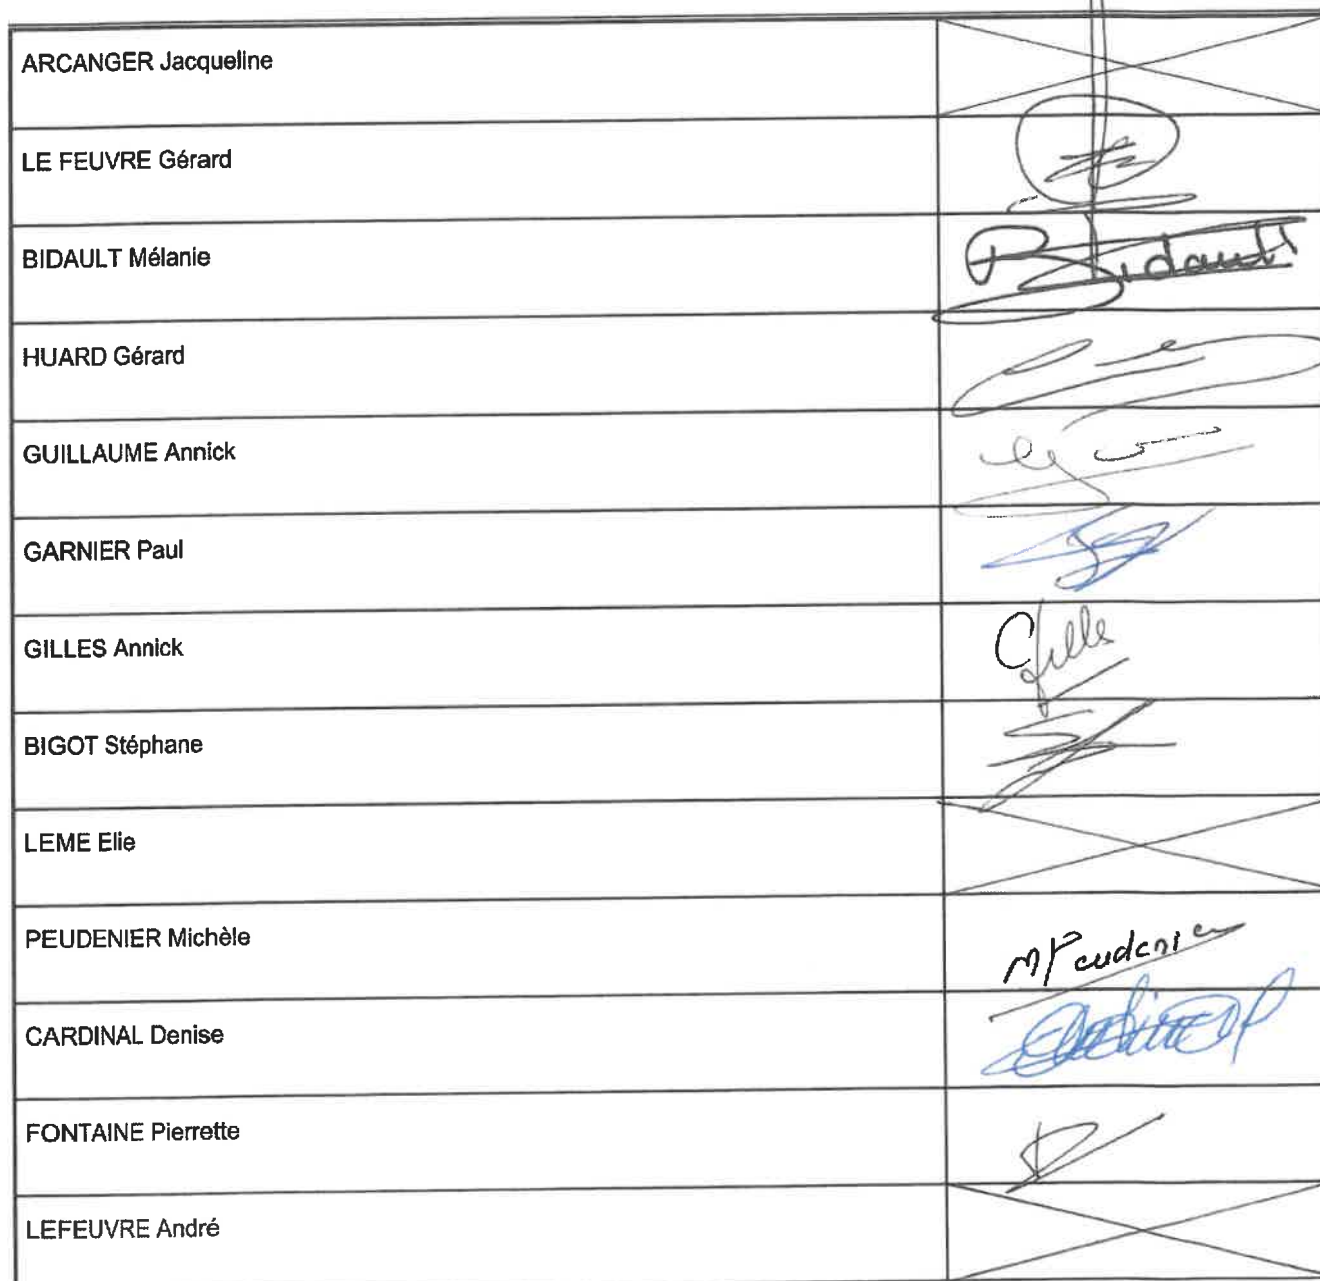 ARCANGER Jacqueline
LE FEUVRE Gérard
BIDAULT Mélanie
Bidault
HUARD Gérard
GUILLAUME Annick
GARNIER Paul
GILLES Annick
Gilles
BIGOT Stéphane
LEME Elie
PEUDENIER Michèle
MPeudenier
CARDINAL Denise
FONTAINE Pierrette
LEFEUVRE André